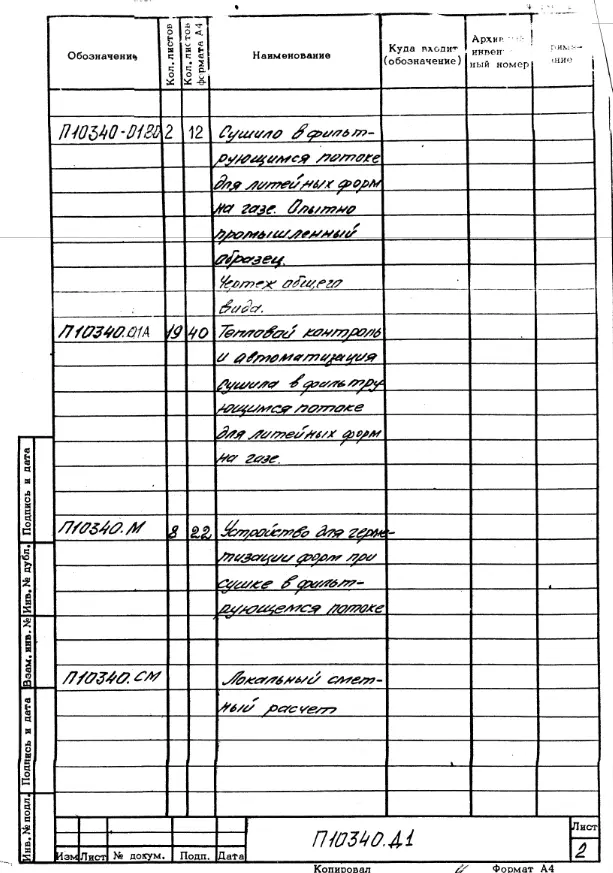 Обозначение
Кол. листов
Кол. листов формата А4
Наименование
Куда входит
(обозначение)
ный номер
П10340-01ВО 2 12 Сушило в фильт-
рующимся потоке
для литейных форм
на газе. Опытно
промышленный
образец.
Чертеж общего
вида.
П10340.01А 19 40 Тепловой контроль
и автоматизация
сушила в фильтру
ющимся потоке
для литейных форм
на газе.
П10340.М 8 22 Устройство для герме-
тизации форм при
сушке в фильт-
рующемся потоке
П10340.СМ Локальный смет-
ный расчет
Подпись и дата
Инв. № дубл.
Взам. инв. №
Подпись и дата
Инв. № подл.
П10340.Д1
Лист
2
Изм Лист № докум. Подп. Дата
Копировал Формат А4